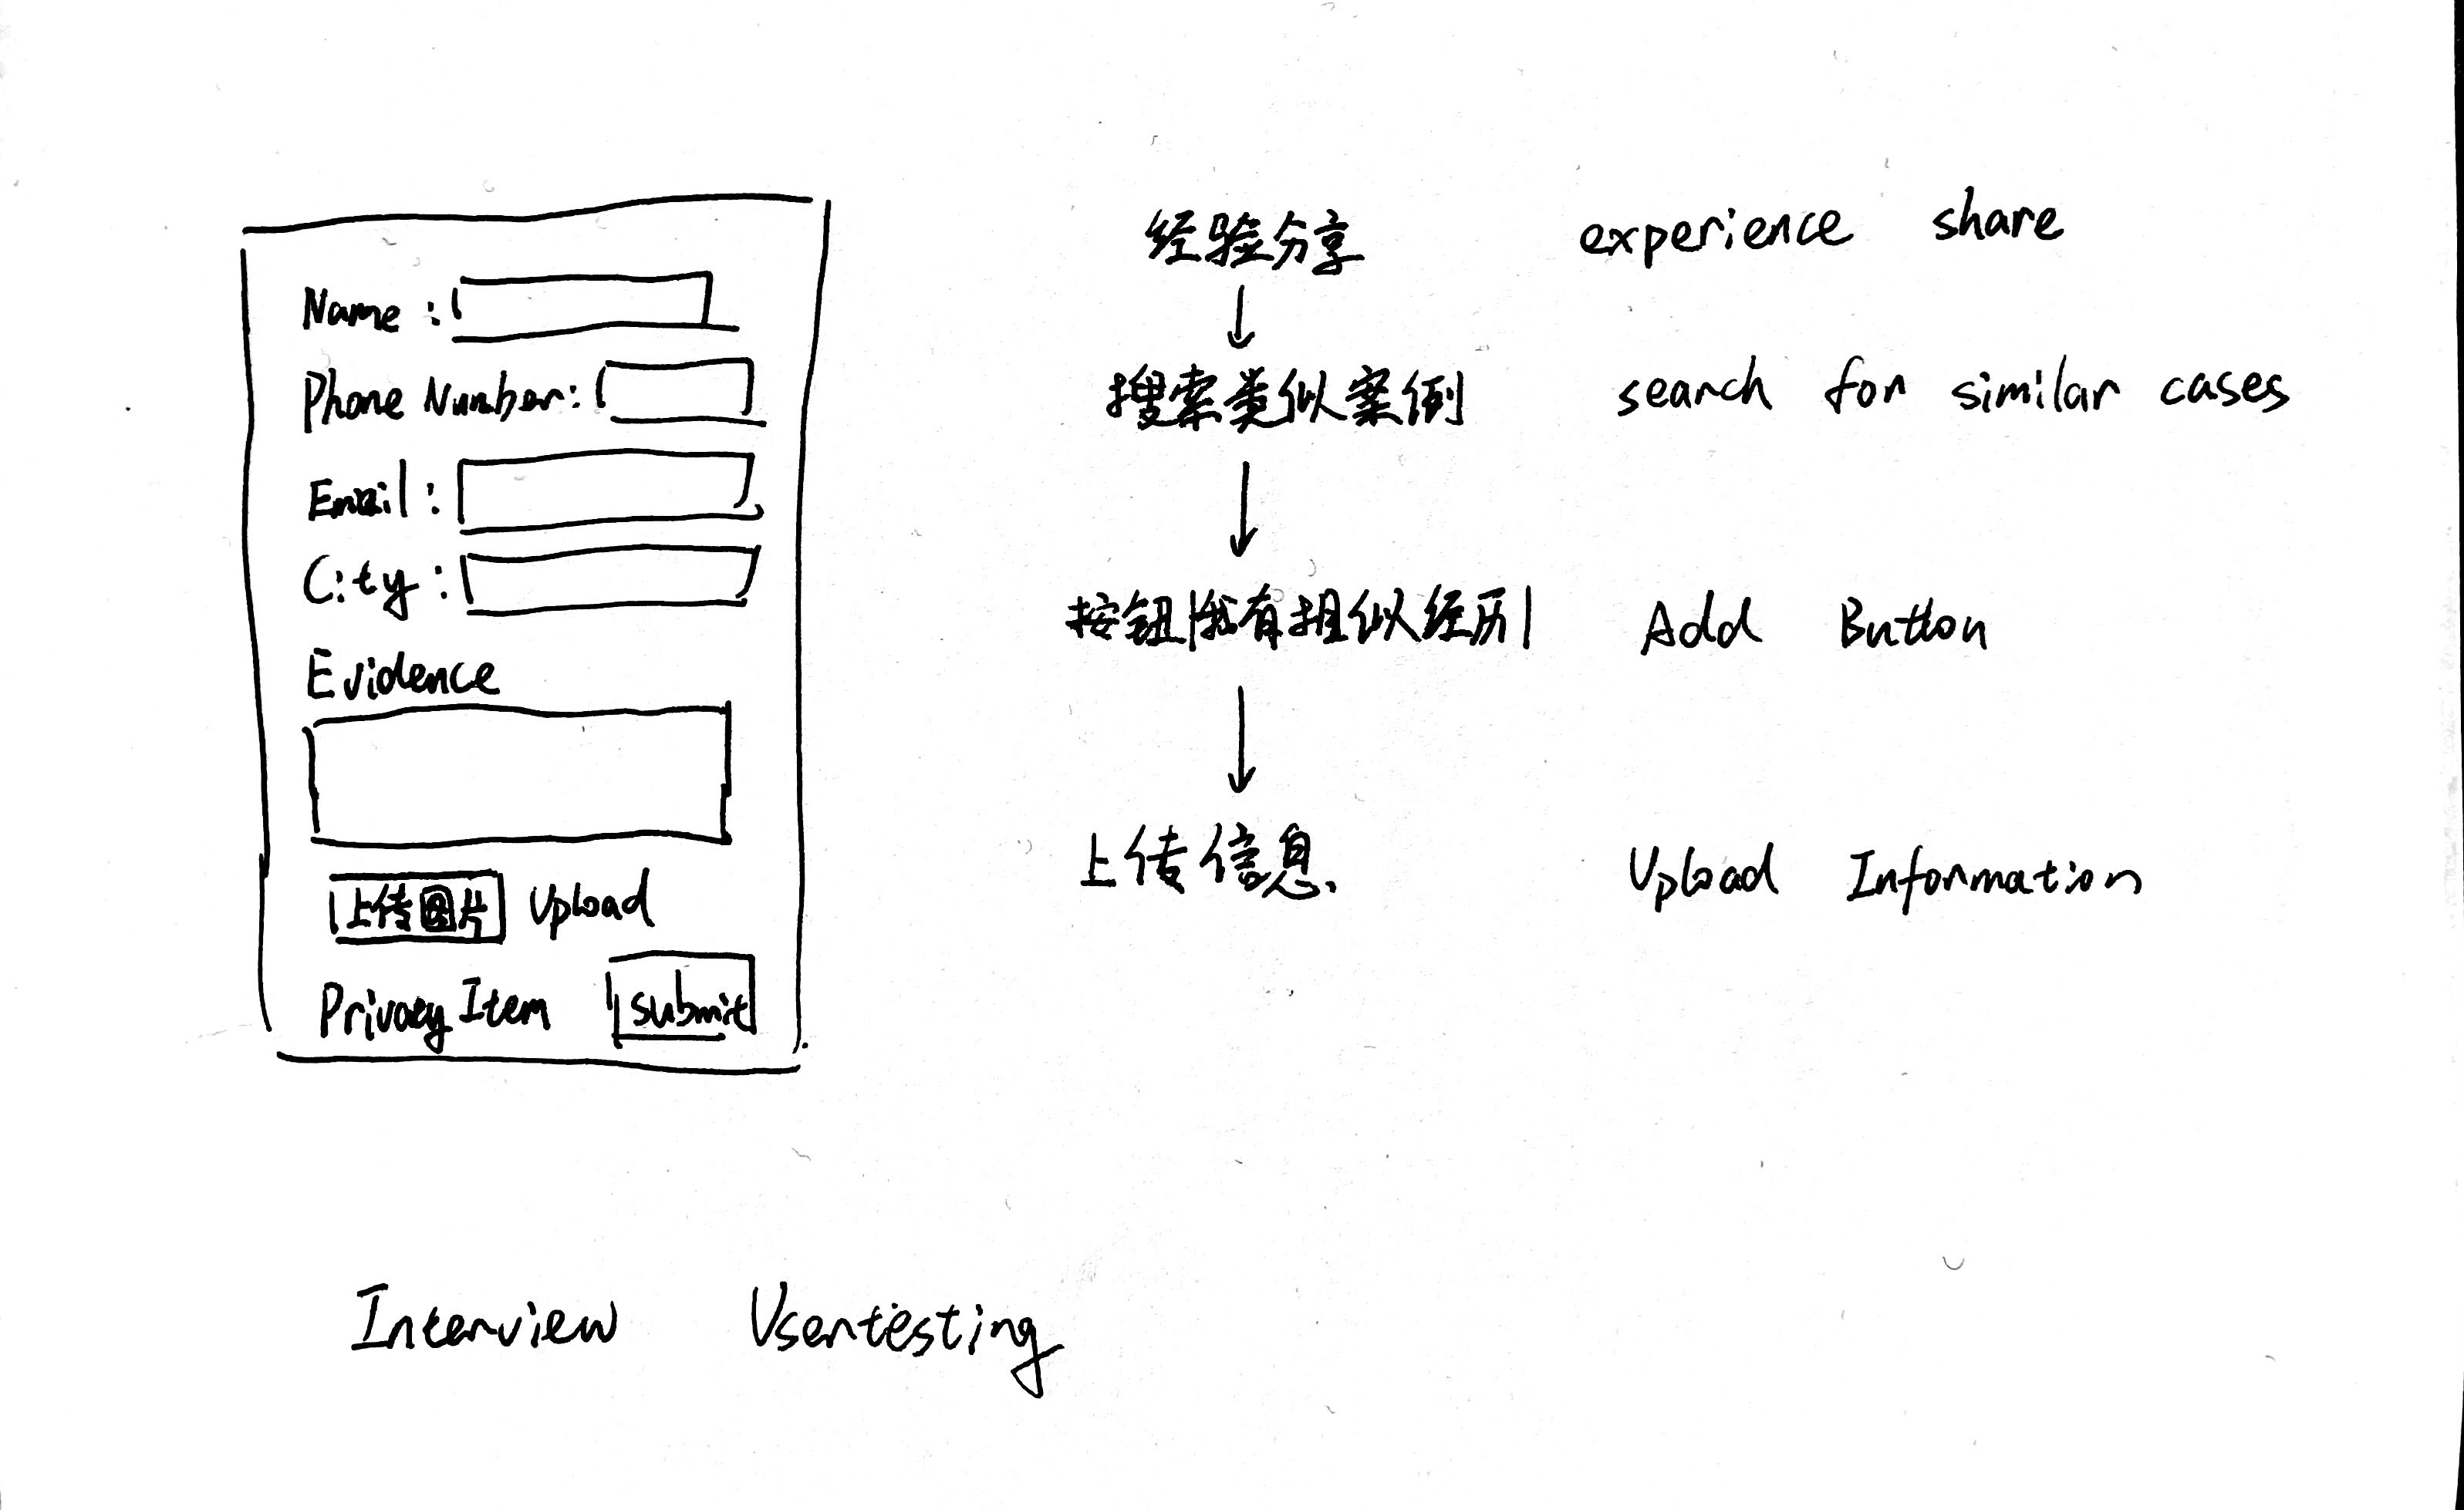 Name :
Phone Number:
Email :
City :
Evidence
上传图片 Upload
Privacy Item submit
经验分享 experience share
搜索类似案例 search for similar cases
按钮|我有相似经历| Add Button
上传信息. Upload Information
Interview Usertesting